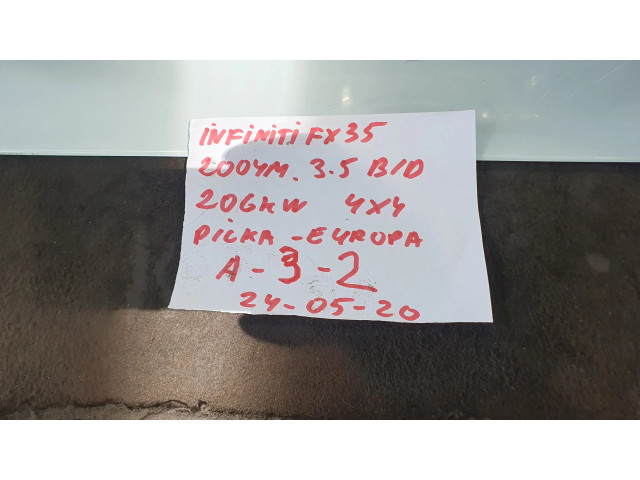 iNFiNiTi FX35
2004M. 3.5 B/D
206KW 4X4
PILKA - EUROPA
A - 3 - 2
24-05-20